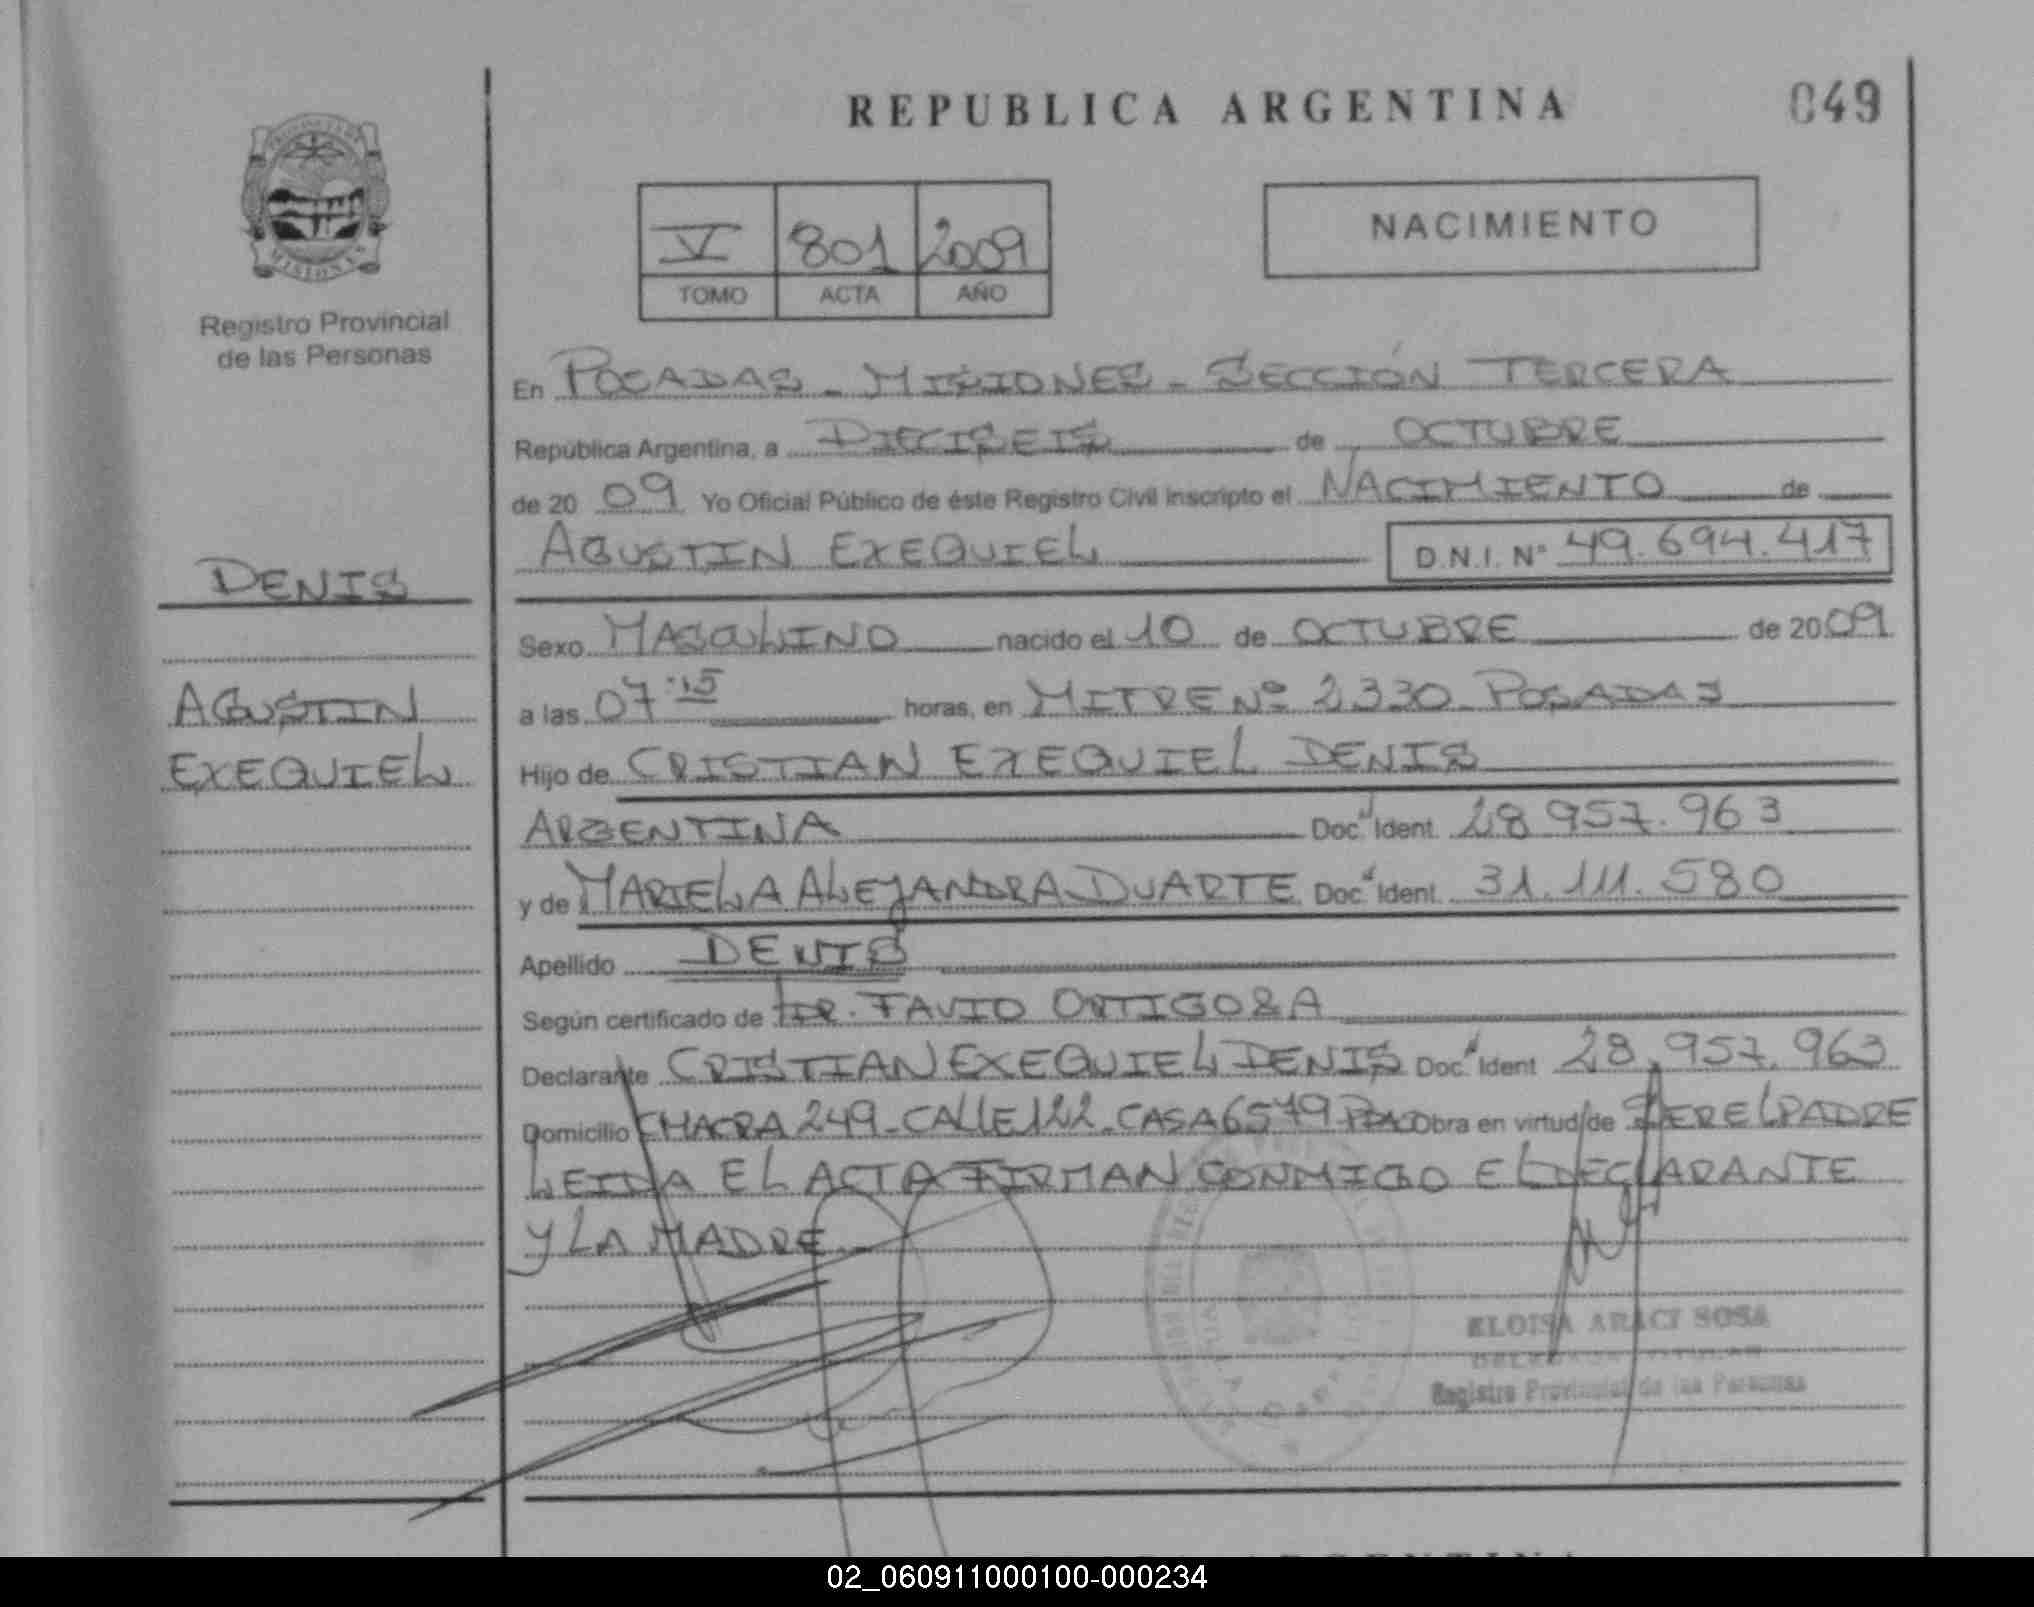 REPUBLICA ARGENTINA
049
V 801 2009
TOMO ACTA AÑO
NACIMIENTO
MISIONES
Registro Provincial
de las Personas
En POSADAS - MISIONES - SECCIÓN TERCERA
República Argentina, a DIECISEIS de OCTUBRE
de 20 09 Yo Oficial Público de éste Registro Civil inscripto el NACIMIENTO de
AGUSTIN EXEQUIEL D.N.I. N° 49.694.417
DENIS
AGUSTIN
EXEQUIEL
Sexo MASCULINO nacido el 10 de OCTUBRE de 20 09
a las 07:15 horas, en MITRE Nº 2330 - POSADAS
Hijo de CRISTIAN EXEQUIEL DENIS
ARGENTINA Doc. Ident. 28 957. 963
y de MARIELA ALEJANDRA DUARTE Doc. Ident. 31.111.580
Apellido DENIS
Según certificado de DR. FAVIO ORTIGOSA
Declarante CRISTIAN EXEQUIEL DENIS Doc. Ident 28.957.963
Domicilio CHACRA 249 - CALLE 122 - CASA 6579 Obra en virtud de SER EL PADRE
LEIDA EL ACTA FIRMAN CONMIGO EL DECLARANTE
Y LA MADRE
ELOISA ARACI SOSA
DELEGADA TITULAR
Registro Provincial de las Personas
02_060911000100-000234